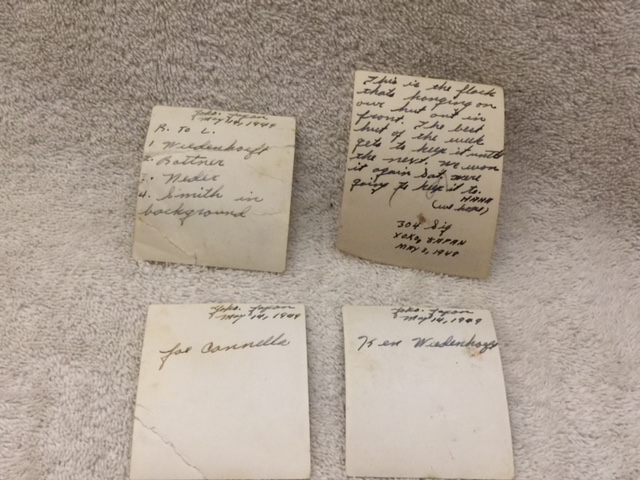 Yoko. Japan
May 14, 1949
R. To L.
1. Wiedenhoft
2. Bottner
3. Neder
4. Smith in
background
This is the flack
thats hanging on
our hut out in
front. The best
hut of the week
gets to keep it until
the next. We won
it again Sat, were
going to keep it to.
HAHA
(we hope)
304 Sig
YOKO, JAPAN
MAY 2, 1949
Yoko. Japan
May 14, 1949
Joe Connella
Yoko. Japan
May 14, 1949
Ken Wiedenhoft